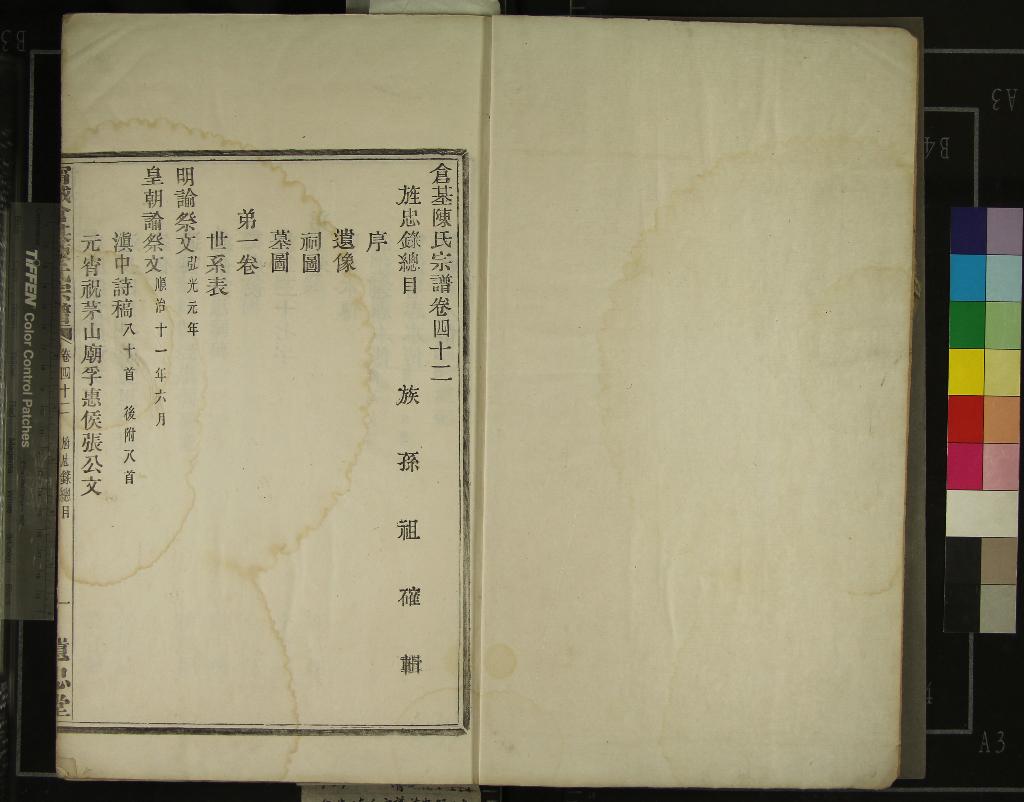 倉基陳氏宗譜卷四十二
旌忠錄總目 族孫祖確輯
序
遺像
祠圖
墓圖
弟一卷
世系表
明諭祭文 弘光元年
皇朝諭祭文 順治十一年六月
滇中詩稿 八十首 後附八首
元宵祝茅山廟孚惠侯張公文
卷四十二 旌忠錄總目
一
遺忠堂
TIFFEN Color Control Patches
A3
B4
A3
B3